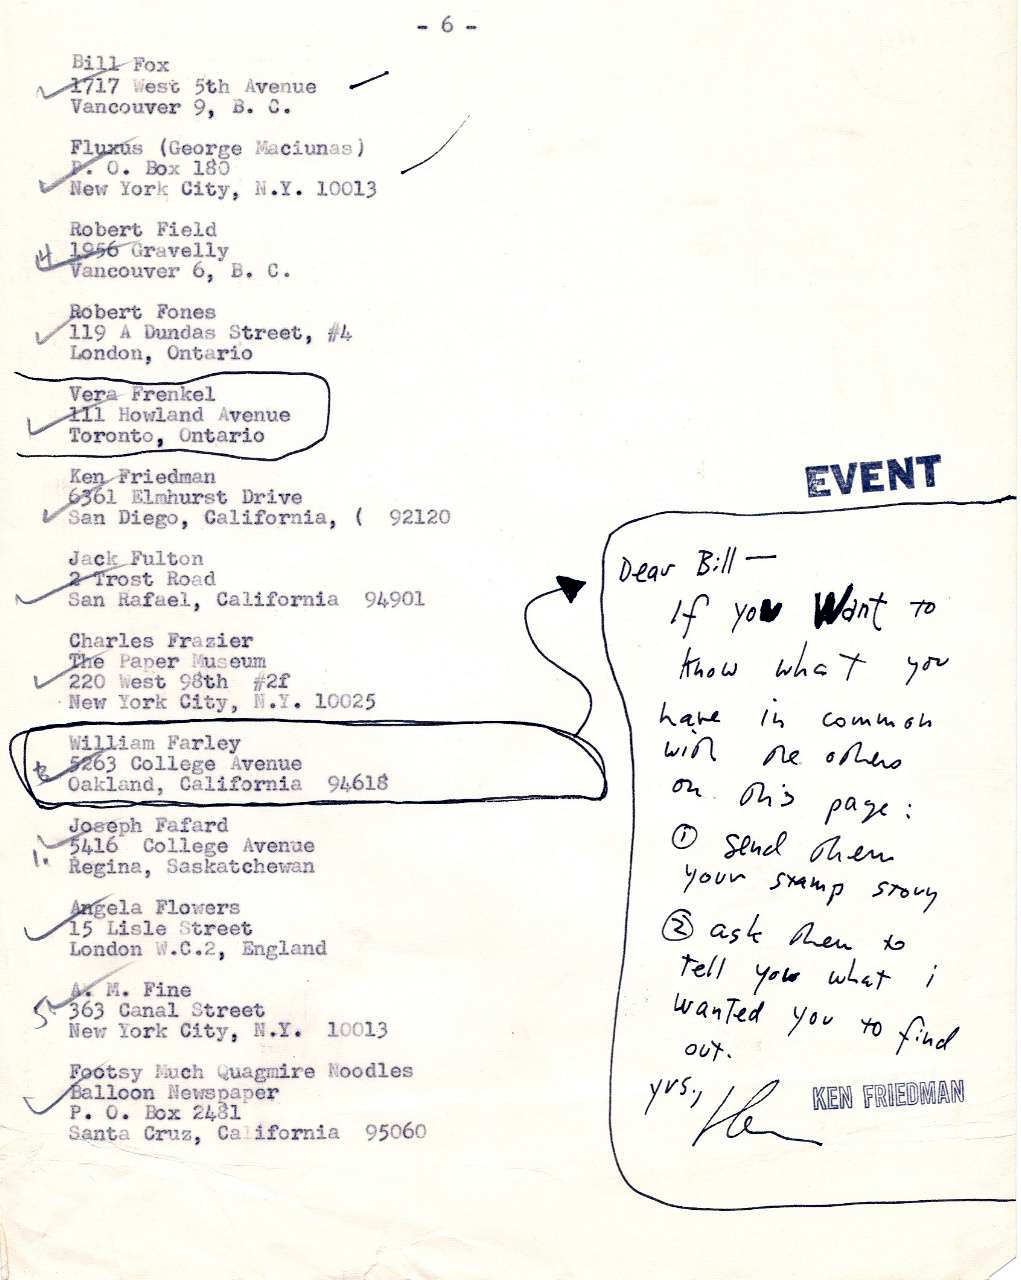 - 6 -
Bill Fox
1717 West 5th Avenue
Vancouver 9, B. C.
Fluxus (George Maciunas)
P. O. Box 180
New York City, N.Y. 10013
Robert Field
4 1956 Gravelly
Vancouver 6, B. C.
Robert Fones
119 A Dundas Street, #4
London, Ontario
Vera Frenkel
111 Howland Avenue
Toronto, Ontario
Ken Friedman
6361 Elmhurst Drive
San Diego, California, ( 92120
Jack Fulton
2 Trost Road
San Rafael, California 94901
Charles Frazier
The Paper Museum
220 West 98th #2f
New York City, N.Y. 10025
William Farley
5263 College Avenue
Oakland, California 94618
Joseph Fafard
5416 College Avenue
1. Regina, Saskatchewan
Angela Flowers
15 Lisle Street
London W.C.2, England
A. M. Fine
5 363 Canal Street
New York City, N.Y. 10013
Footsy Much Quagmire Noodles
Balloon Newspaper
P. O. Box 2481
Santa Cruz, California 95060
EVENT
Dear Bill —
If you want to
know what you
have in common
with the others
on this page:
① send them
your stamp story
② ask them to
tell you what i
wanted you to find
out.
yrs.,
Ken
KEN FRIEDMAN